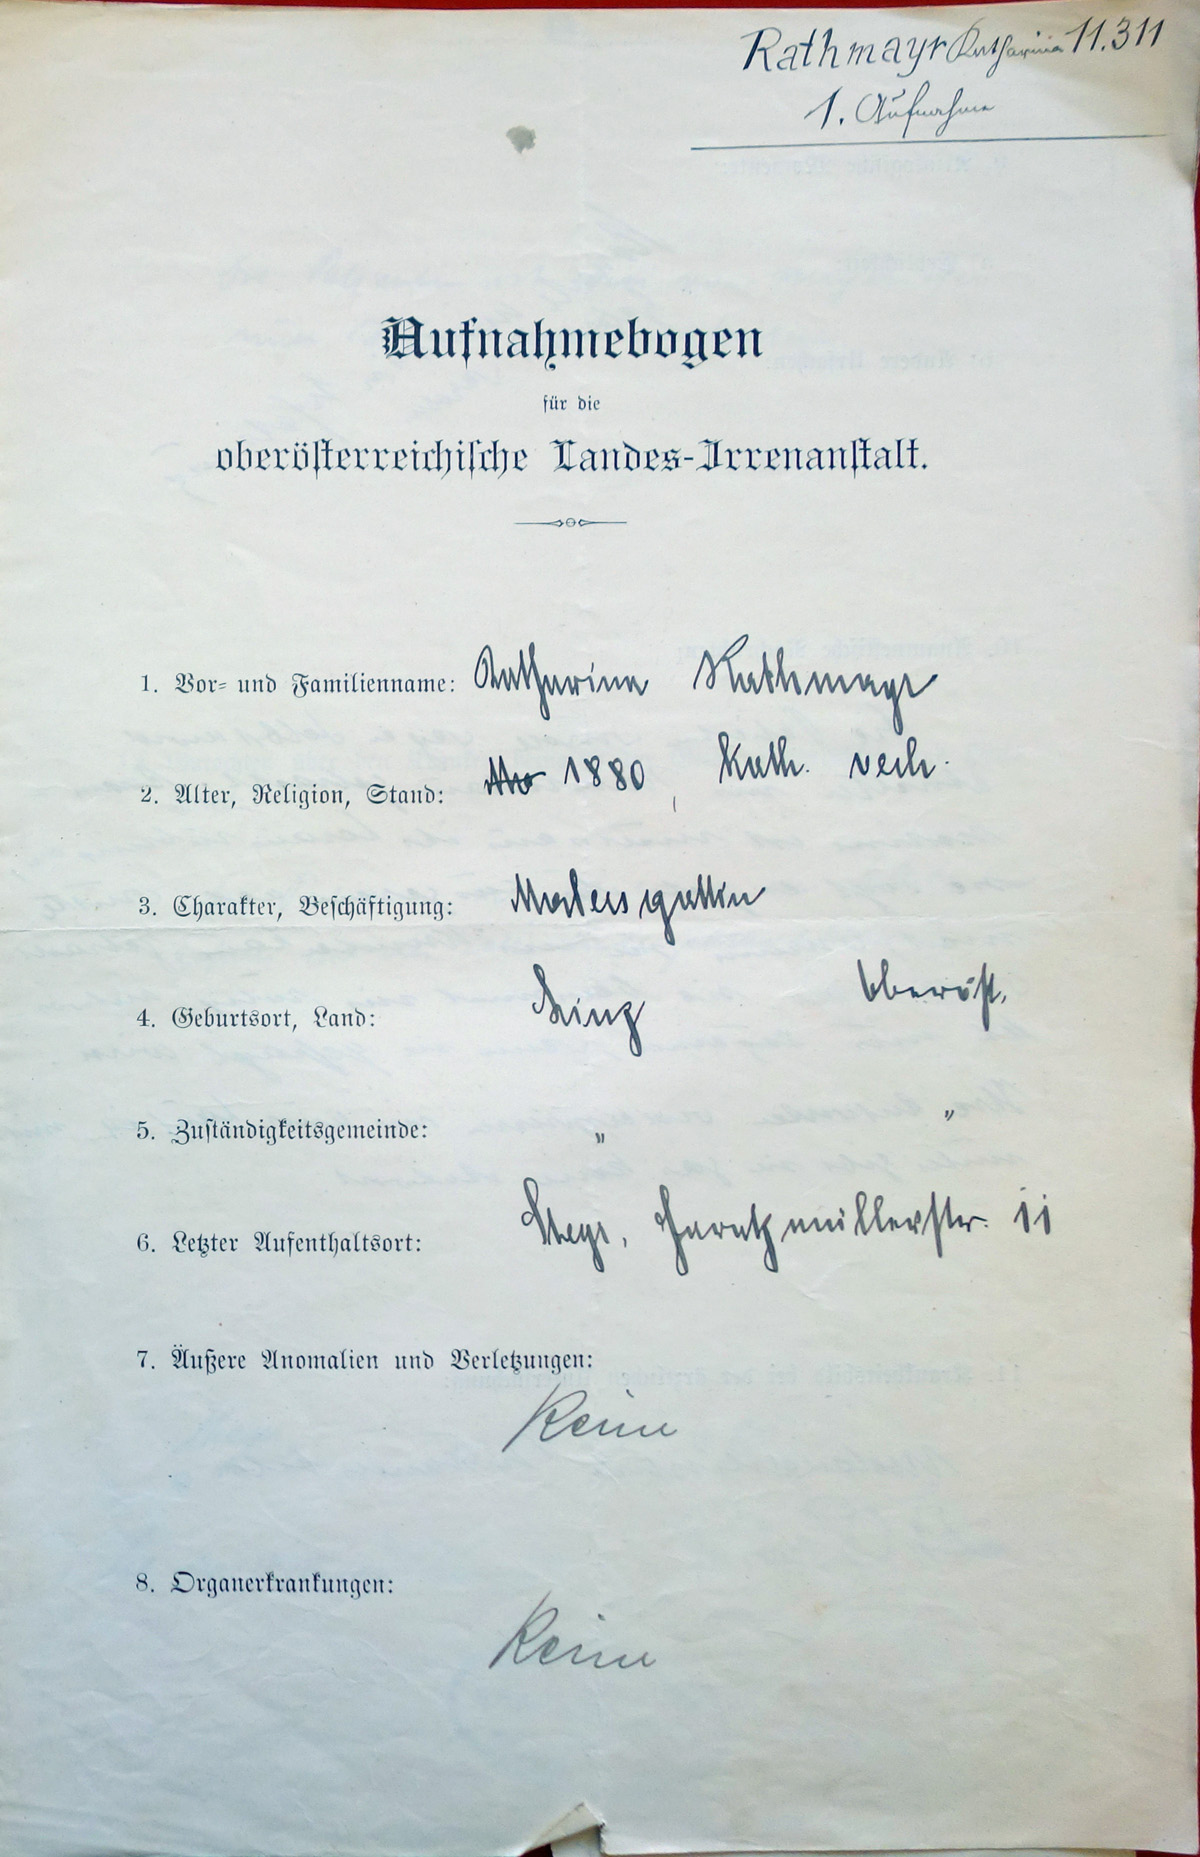 Rathmayr Katharina 11.311
1. Aufnahme
Aufnahmebogen
für die
oberösterreichische Landes-Irrenanstalt.
1. Vor- und Familienname: Katharina Rathmayr
2. Alter, Religion, Stand: 1880, kath. verh.
3. Charakter, Beschäftigung: Malersgattin
4. Geburtsort, Land: Linz Oberöst.
5. Zuständigkeitsgemeinde: " "
6. Letzter Aufenthaltsort: Steyr, Haratzmüllerstr. 11
7. Äußere Anomalien und Verletzungen:
Keine
8. Organerkrankungen:
Keine